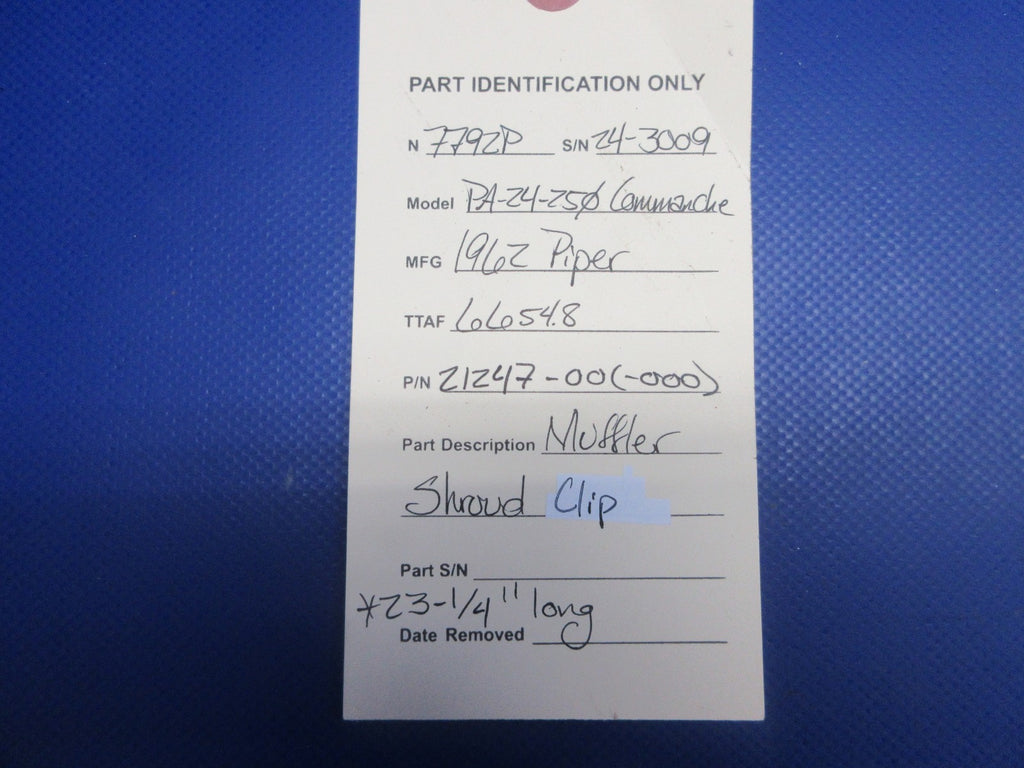 PART IDENTIFICATION ONLY
N 7792P S/N 24-3009
Model PA-24-250 Commanche
MFG 1962 Piper
TTAF 6654.8
P/N 21247-00(-000)
Part Description Muffler
Shroud Clip
Part S/N
*23-1/4" long
Date Removed